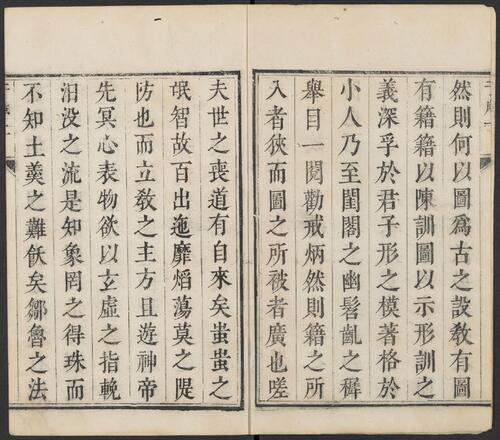 然則何以圖爲古之設教有圖
有籍籍以陳訓圖以示形訓之
義深孚於君子形之模著格於
小人乃至閨閤之幽髫齓之穉
舉目一閱勸戒炳然則籍之所
入者狹而圖之所被者廣也嗟
夫世之喪道有自來矣蚩蚩之
氓智故百出迤靡熖蕩莫之隄
防也而立敎之主方且遊神帝
先冥心表物欲以玄虛之指輓
汨没之流是知象罔之得珠而
不知土羹之難飫矣鄒魯之法